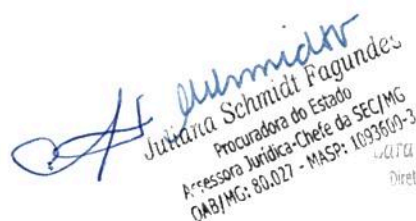 Schmidt
Juliana Schmidt Fagundes
Procuradora do Estado
Assessora Jurídica-Chefe da SEC/MG
OAB/MG: 80.027 - MASP: 1093600-3
Diret